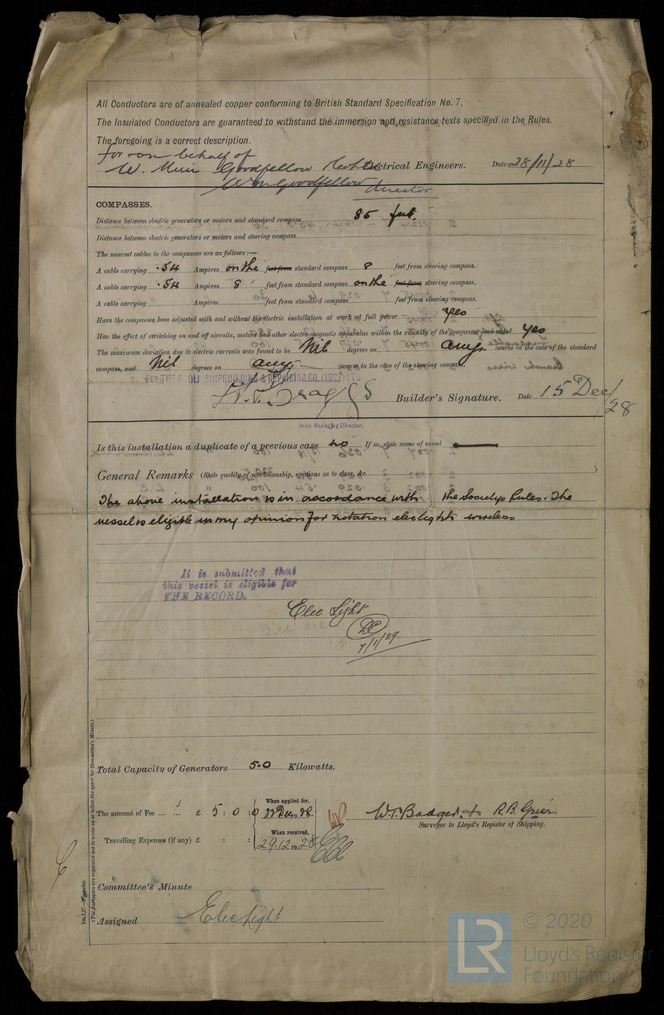 All Conductors are of annealed copper conforming to British Standard Specification No. 7.
The Insulated Conductors are guaranteed to withstand the immersion and resistance tests specified in the Rules.
The foregoing is a correct description.
for on behalf of
W. Muir Goodfellow Electrical Engineers. Date 28/11/28
Wm Goodfellow director
COMPASSES.
Distance between electric generators or motors and standard compass 85 feet.
Distance between electric generators or motors and steering compass
The nearest cables to the compasses are as follows:—
A cable carrying .54 Ampères on the feet from standard compass 8 feet from steering compass.
A cable carrying .54 Ampères 8 feet from standard compass on the feet from steering compass.
A cable carrying Ampères feet from standard compass feet from steering compass.
Have the compasses been adjusted with and without the electric installation at work at full power yes
Has the effect of switching on and off circuits, motors and other electro-magnetic apparatus within the vicinity of the compasses been noted yes
The maximum deviation due to electric currents was found to be Nil degrees on any course in the case of the standard
compass, and Nil degrees on any course in the case of the steering compass.
SHIPBUILDING & REPAIRING CO. (1927) LTD.
Builder's Signature. Date 15 Dec/28
Joint Managing Director.
Is this installation a duplicate of a previous case no If so, state name of vessel
General Remarks (State quality of workmanship, opinions as to class, &c.)
The above installation is in accordance with the Societys Rules. The
vessel is eligible in my opinion for notation elec light wireless
It is submitted that
this vessel is eligible for
THE RECORD.
Elec Light
7/1/29
Total Capacity of Generators 5.0 Kilowatts.
The amount of Fee ... £ 5 : 0 : 0
When applied for,
Travelling Expenses (if any) £ : :
When received,
29.12.1928
W.T. Badger for R.B. Grier
Surveyor to Lloyd's Register of Shipping.
Committee's Minute
Assigned Elec Light
LR © 2020
Lloyd's Register
Foundation